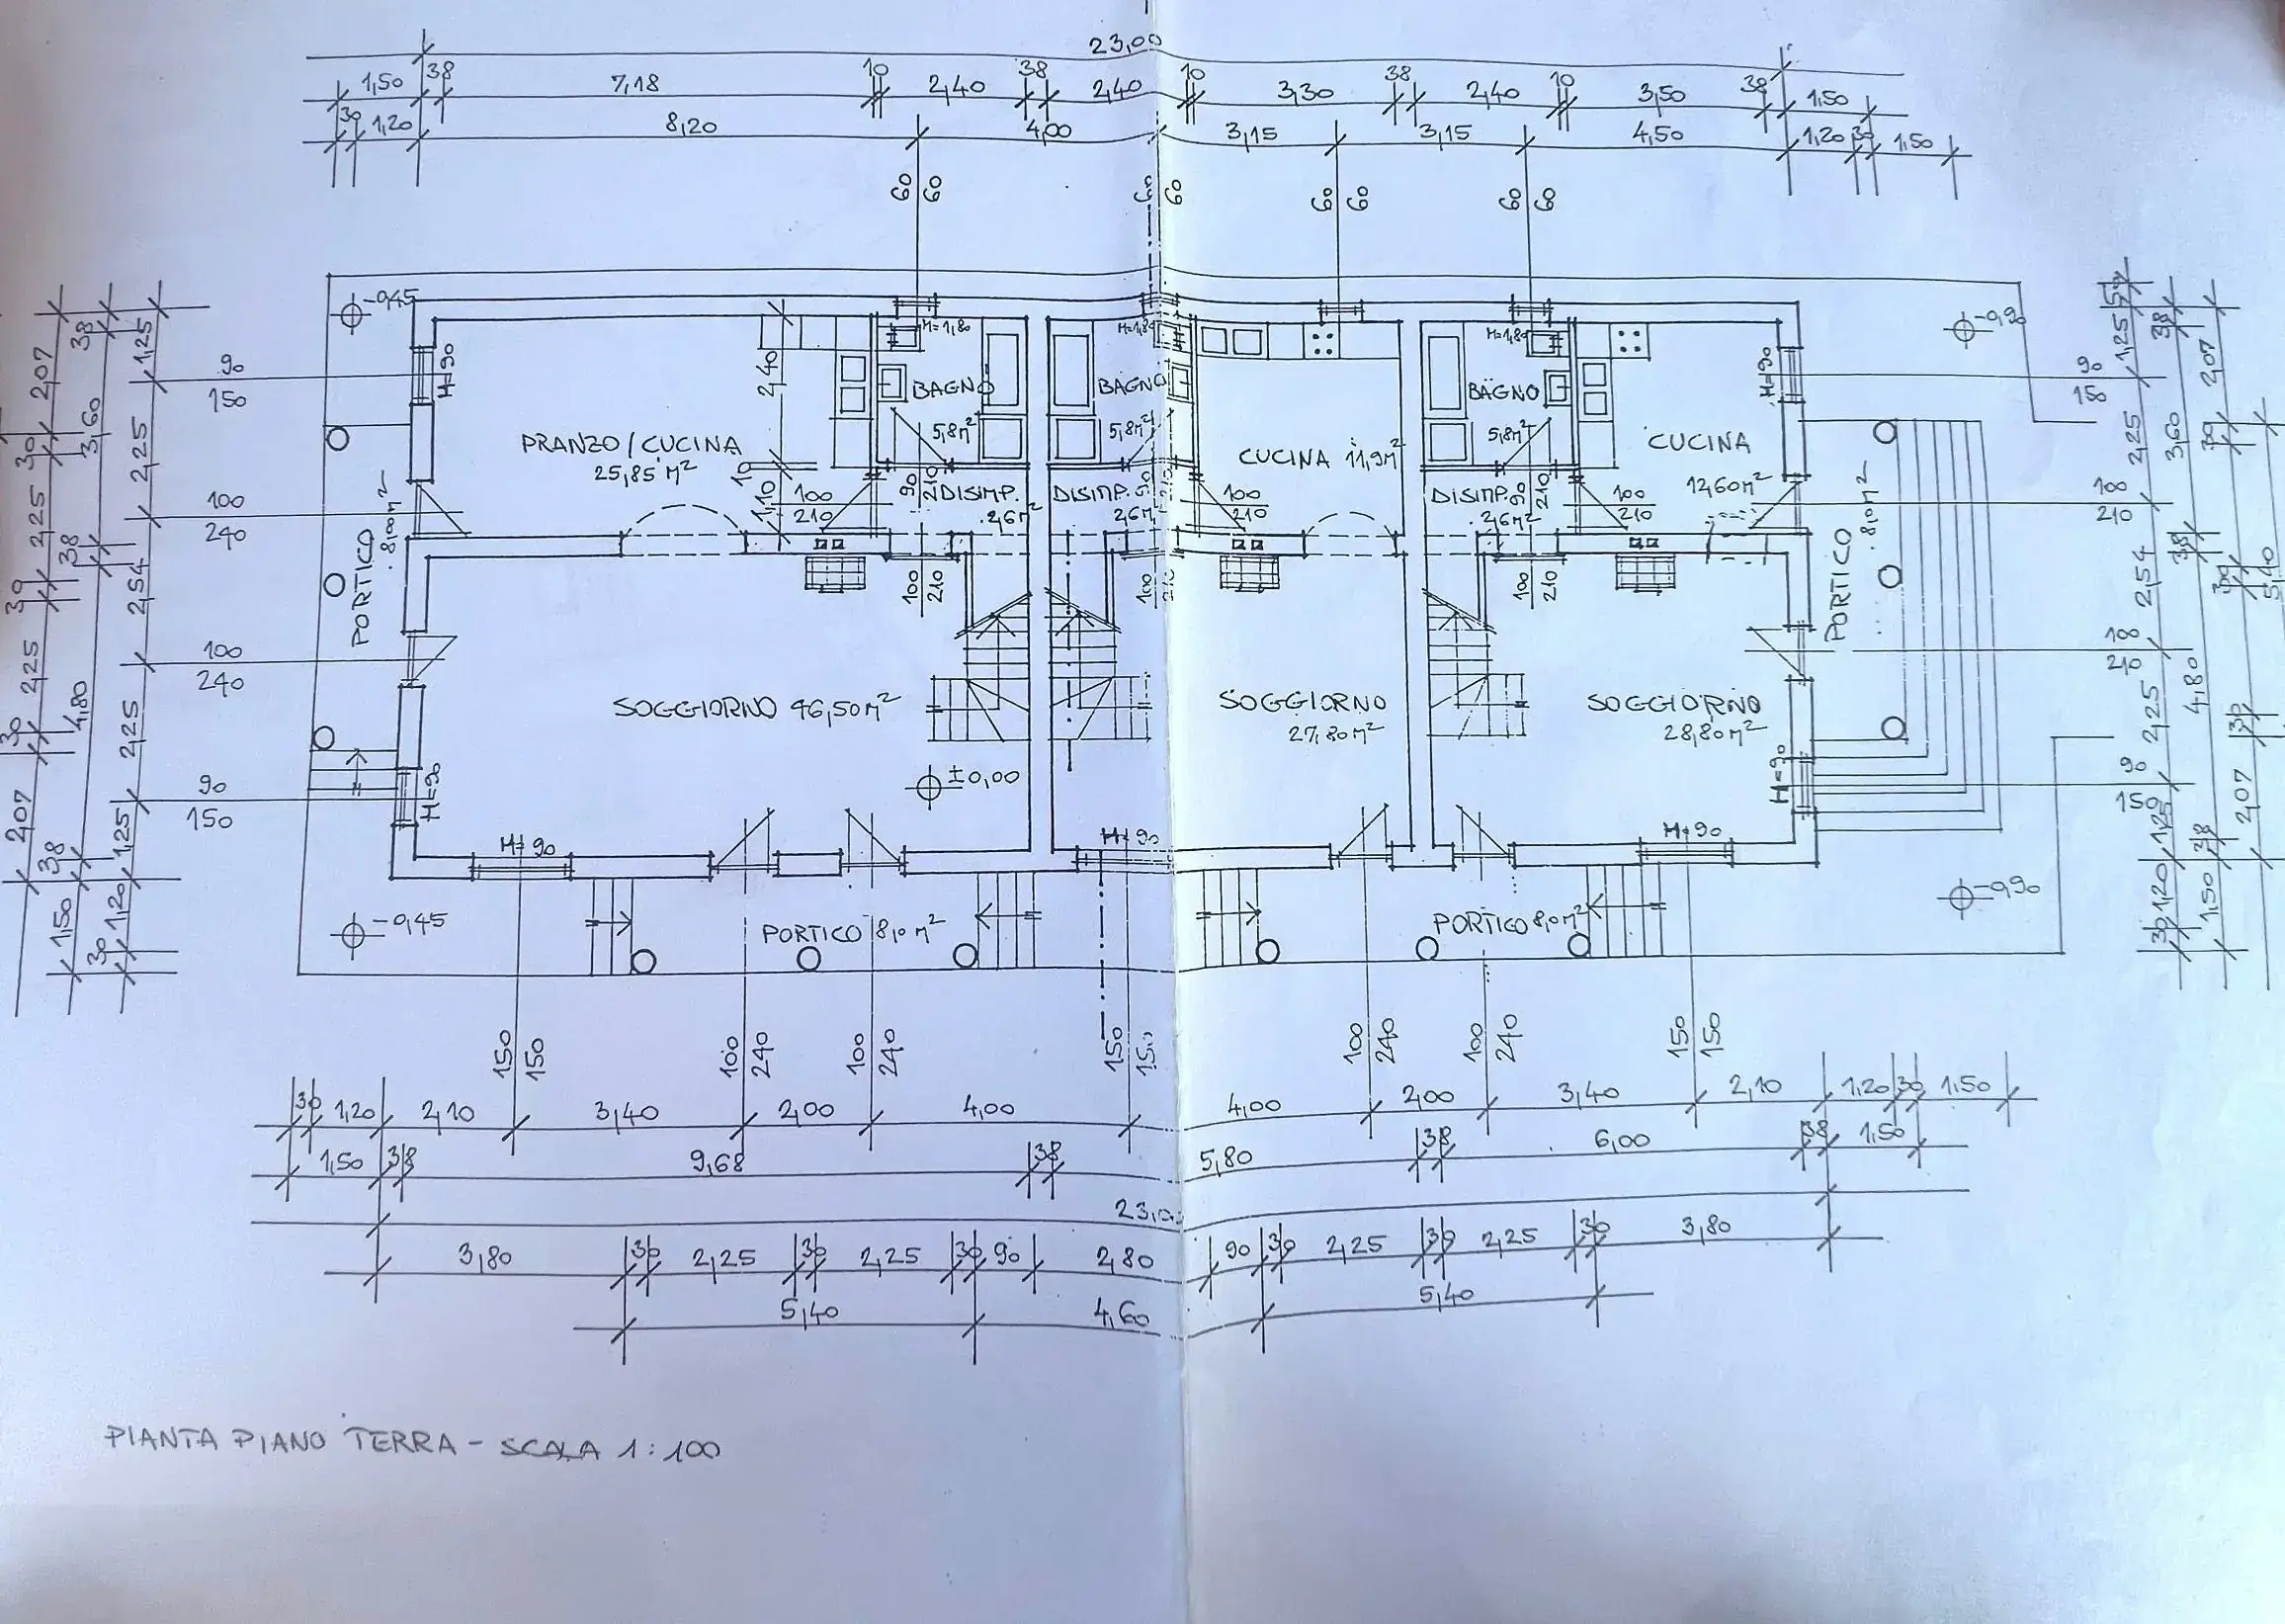 23,00
1,50 38 7,18 10 2,40 38 2,40 10 3,30 38 2,40 10 3,50 38 1,50
30 1,20 8,20 4,00 3,15 3,15 4,50 1,20 30 1,50
60 60 60 60 60 60 60 60
-0,45
-0,90
H=1,80 H=1,80 H=1,80
H=90
H=90
38 1,25
2,07
90
150
2,40
BAGNO BAGNO BAGNO
5,8m² 5,8m² 5,8m²
PRANZO/CUCINA
25,85 m²
CUCINA 11,9m²
CUCINA
12,60m²
3,60
2,25
30
10
1,10
100
210
90
210
DISIMP.
2,6m²
DISIMP. 90
2,6m²
100
210
DISIMP. 90
210
2,6m²
100
210
100
240
PORTICO
8,00m²
PORTICO
8,0m²
2,25
38
2,54
30
100
210
100
100
210
100
240
2,25
4,80
30
SOGGIORNO 46,50m²
SOGGIORNO
27,80m²
SOGGIORNO
28,80m²
±0,00
90
150
H=90
H=90
2,07
38
1,25
H=90 H=90 H=90
1,50
30
1,20
-0,45
PORTICO 8,0m²
PORTICO 8,0m²
-0,90
57
1,25
38
2,07
90
150
2,25
3,60
30
100
210
2,54
38
30
5,40
100
210
2,25
4,80
30
90
150
1,25
38
2,07
1,20
30
1,50
150 150 100 240 100 240 150 100 240 100 240 150 150
30 1,20 2,10 3,40 2,00 4,00 4,00 2,00 3,40 2,10 1,20 30 1,50
1,50 38 9,68 38 5,80 38 6,00 38 1,50
3,80 30 2,25 30 2,25 30 90 2,80 90 30 2,25 30 2,25 30 3,80
5,40 4,60 5,40
PIANTA PIANO TERRA - SCALA 1:100